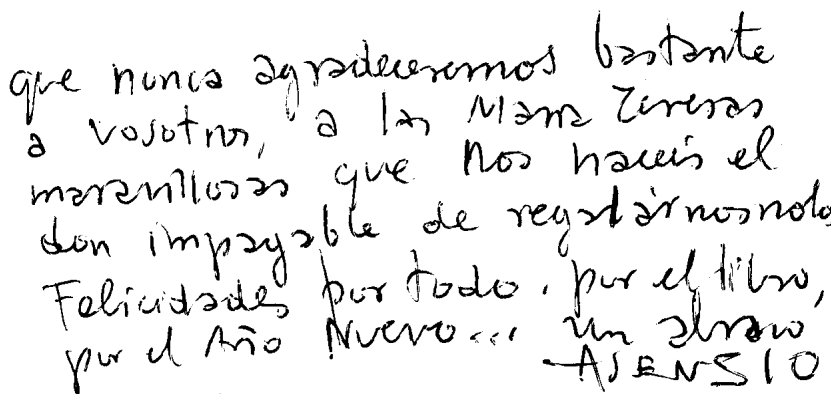 que nunca agradeceremos bastante
a vosotros, a las María Teresas
maravillosas que nos hacéis el
don impagable de regalárnosnolo
Felicidades por todo, por el libro,
por el Año Nuevo... un abrazo,
ASENSIO